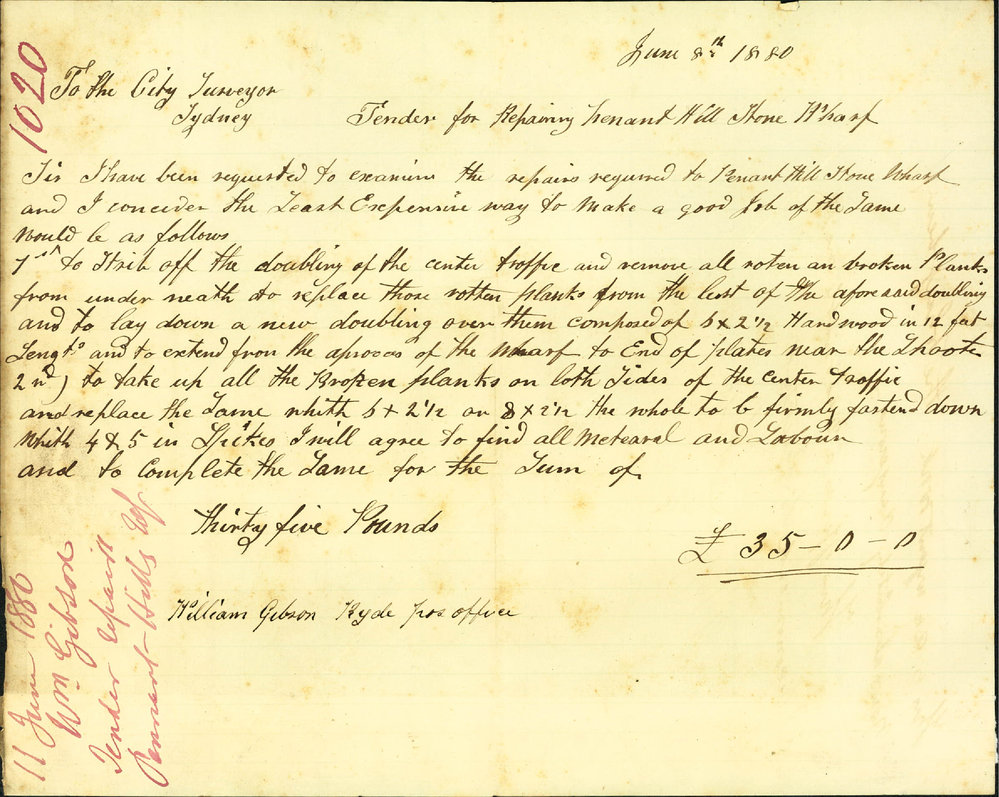 June 8th 1880
To the City Surveyor
Sydney
Tender for Repairing Penant Hill Stone Wharf
Sir I have been requested to examine the repairs required to Penant Hill Stone Wharf
and I concider the Least Expensive way to make a good Job of the Same
would be as follows
1st to Strib off the doubling of the center traffic and remove all roten an broken Planks
from under neath to replace those rotten planks from the best of the afore said doubling
and to lay down a new doubling over them composed of 6 x 2 1/2 Hardwood in 12 feet
Lengts and to extend from the of the wharf to End of plates near the Shoote
2nd) to take up all the Broken planks on both Sides of the Center traffic
and replace the Same whith 6 x 2 1/2 an 8 x 2 1/2 the whole to b firmly fastend down
whith 4 & 5 in Spikes I will agree to find all Metearal and Labour
and to Complete the Same for the Sum of
Thirty five Pounds
£ 35-0-0
William Gibson Ryde pos office
1020
11 June 1880
Wm Gibson
Tender repairs
Pennant-Hills Whf